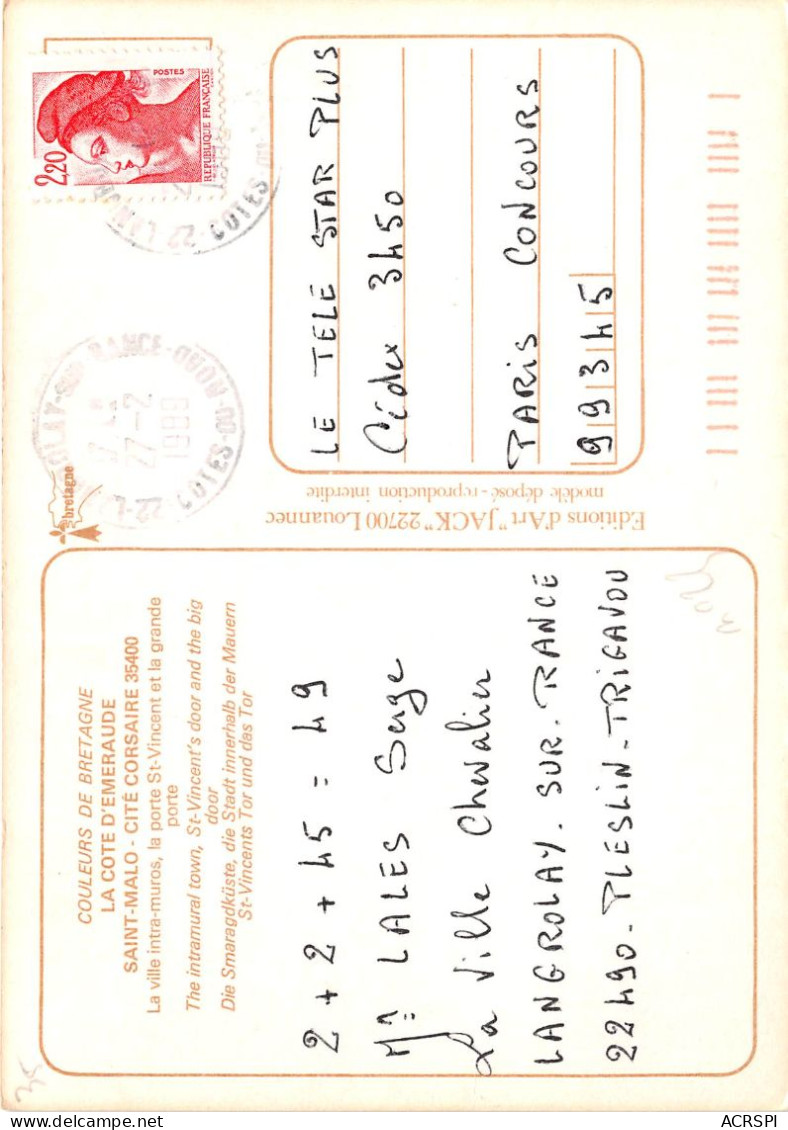 COULEURS DE BRETAGNE
LA COTE D'EMERAUDE
SAINT-MALO - CITÉ CORSAIRE 35400
La ville intra-muros, la porte St-Vincent et la grande
porte
The intramural town, St-Vincent's door and the big
door
Die Smaragdküste, die Stadt innerhalb der Mauern
St-Vincents Tor und das Tor
2 + 2 + 45 = 49
Mr LALES Serge
La Ville Chevalier
LANGROLAY. SUR. RANCE
22490 - PLESLIN-TRIGAVOU
Editions d'Art "JACK" 22700 Louannec
modèle déposé - reproduction interdite
bretagne
27-2
1989
22
COTES-DU-NORD
2,20
POSTES
REPUBLIQUE FRANÇAISE
22
COTES-DU-
LE TELE STAR PLUS
Cédex 3450
PARIS CONCOURS
99345
ACRSPI